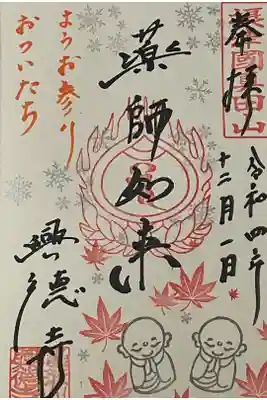 奉拝
令和四年
十二月一日
薬師如来
ようお参り
おついたち
興徳寺